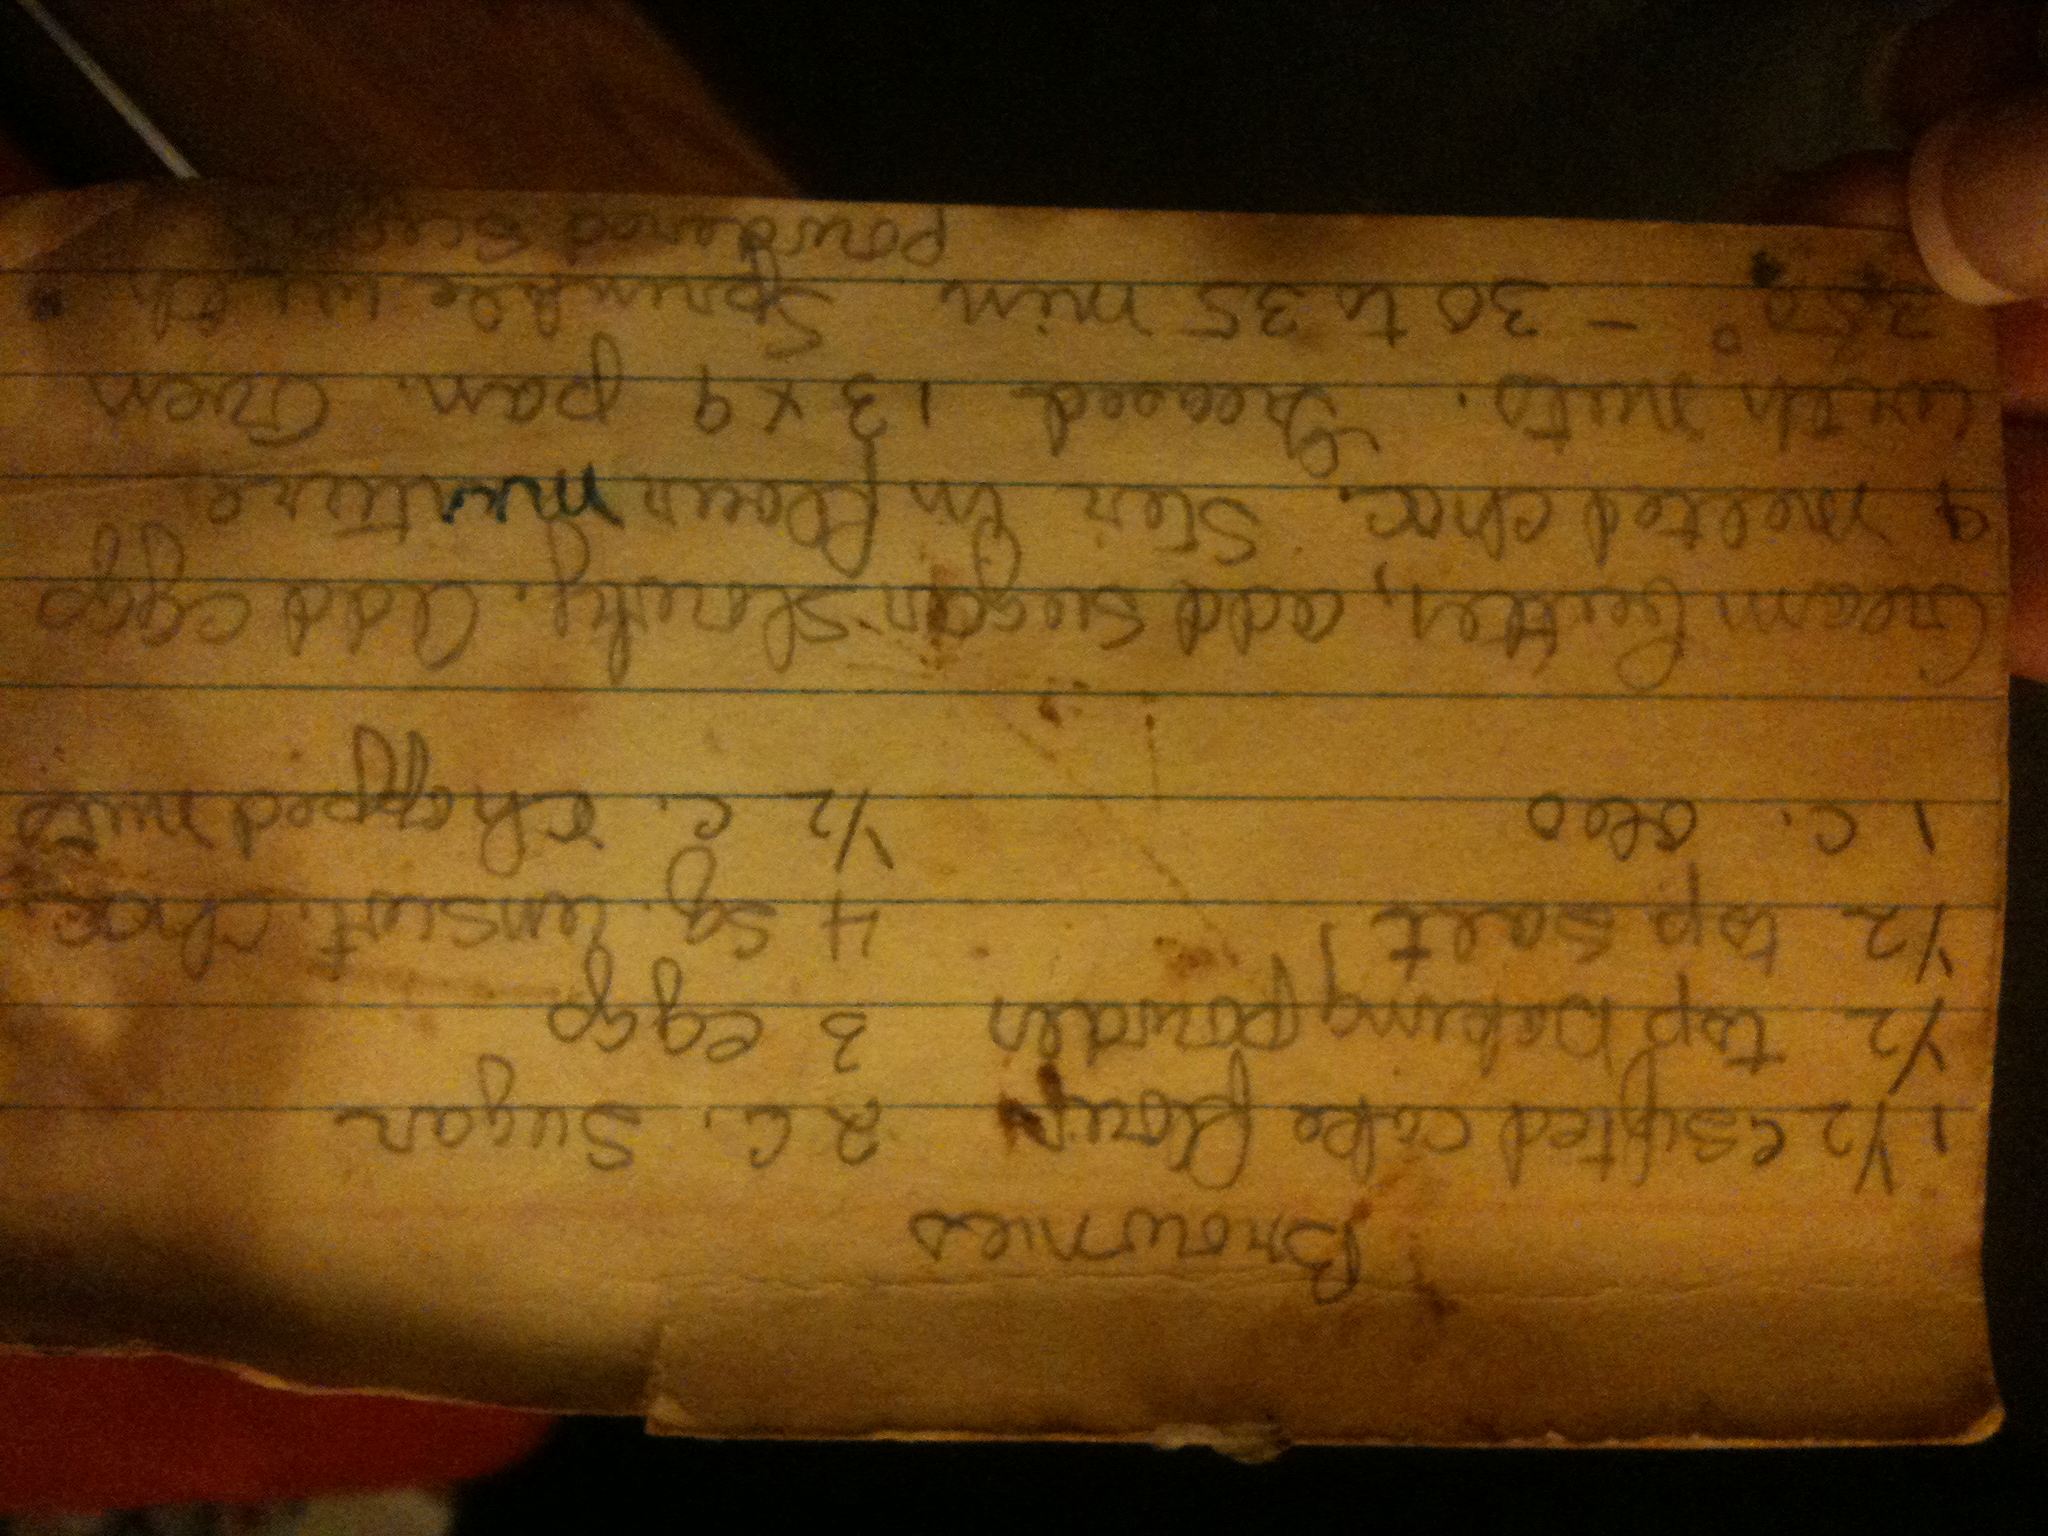 Brownies
1 1/2 c sifted cake flour 2 c. sugar
1/2 tsp baking powder 3 eggs
1/2 tsp salt 4 sq. unswt. choc.
1 c. oleo 1/2 c. chopped nuts
Cream butter, add sugar slowly. Add eggs
& melted choc. Stir in flour mixture
with nuts. Greased 13 x 9 pan. Oven
350° - 30 to 35 min Sprinkle with
powdered sugar